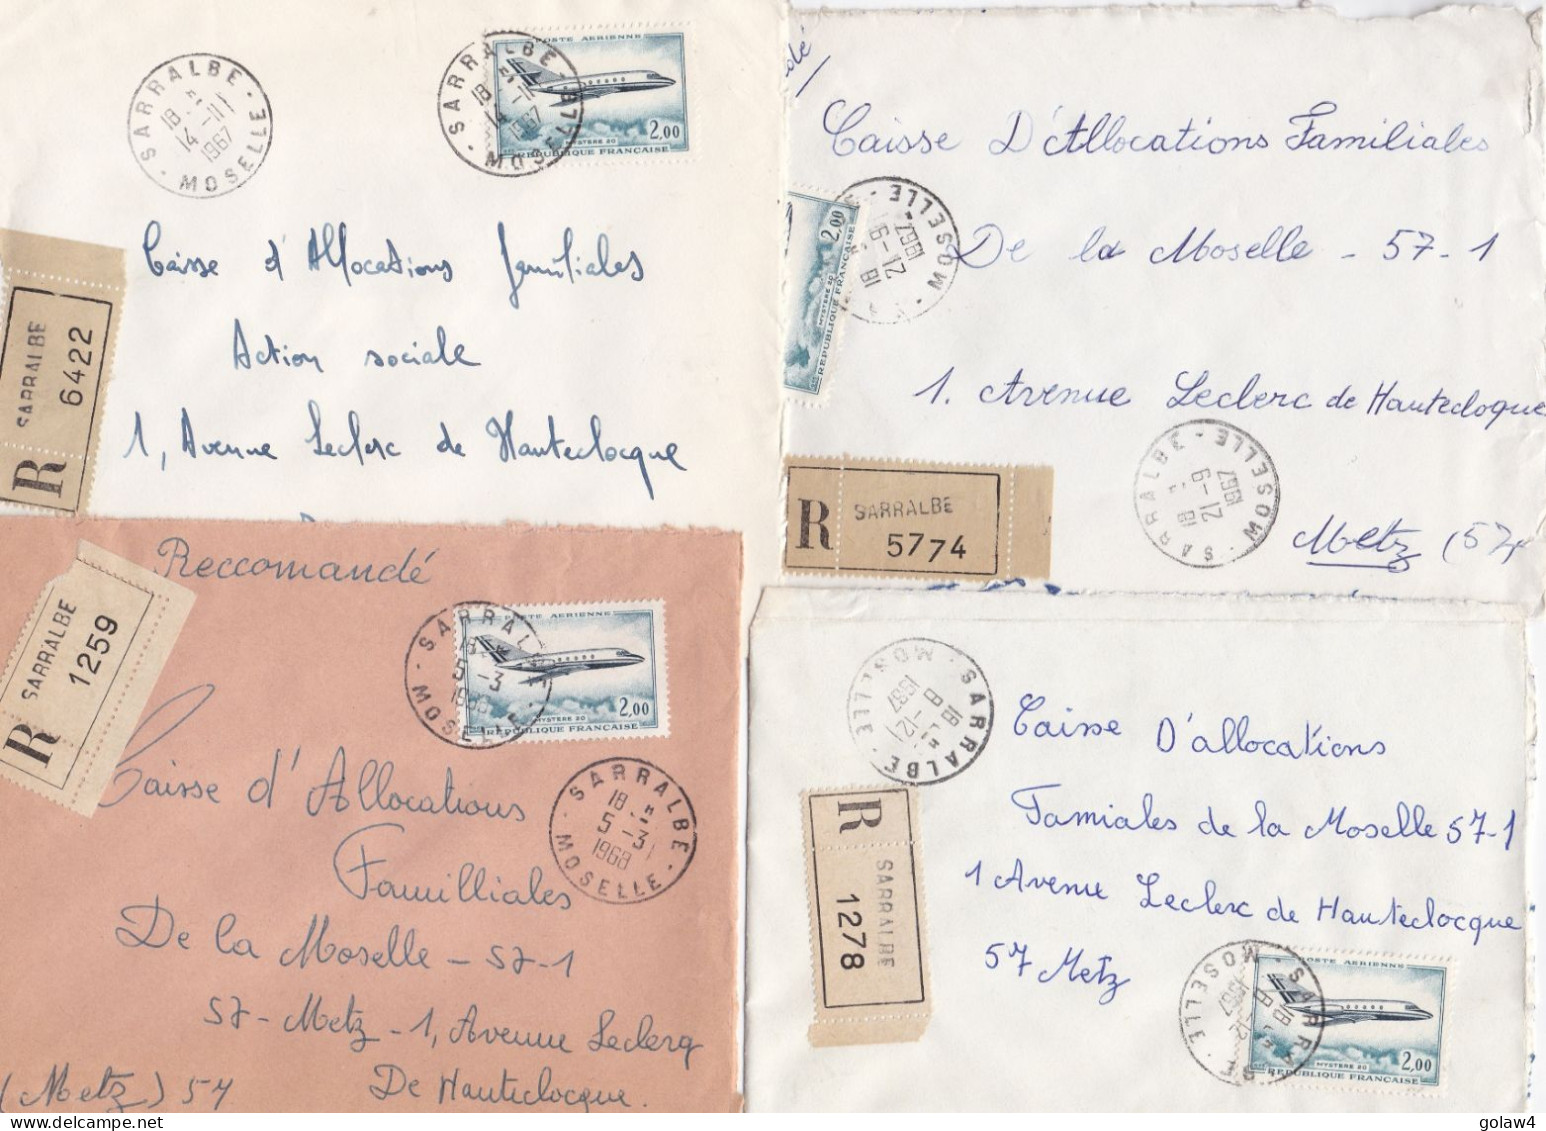 SARRALBE
18 H
14 - 11
1967
MOSELLE
SARRALBE
18 H
14 - 11
1967
MOSELLE
POSTE AERIENNE
2,00
MYSTERE 20
REPUBLIQUE FRANÇAISE
Caisse d'Allocations familiales
Action sociale
1, Avenue Leclerc de Hauteclocque
R SARRALBE
6422
Caisse D'Allocations Familiales
De la Moselle - 57-1
1. Avenue Leclerc de Hautecloque
Metz (57)
2,00
MYSTERE 20
REPUBLIQUE FRANÇAISE
18 H
21 - 9
1967
MOSELLE
SARRALBE
18 H
21 - 9
1967
MOSELLE
R SARRALBE
5774
Reccomandé
R SARRALBE
1259
SARRALBE
5 - 3
MOSELLE
POSTE AERIENNE
2,00
MYSTERE 20
REPUBLIQUE FRANÇAISE
SARRALBE
18 H
5 - 3
1968
MOSELLE
Caisse d'Allocations
Familliales
De la Moselle - 57-1
57 - Metz - 1, Avenue Leclerq
(Metz) 57 De Hauteclocque.
SARRALBE
MOSELLE
R SARRALBE
1278
Caisse D'allocations
Tamiales de la Moselle 57-1
1 Avenue Leclerc de Hauteclocque
57 Metz
SARRALBE
MOSELLE
POSTE AERIENNE
2,00
MYSTERE 20
REPUBLIQUE FRANÇAISE
golaw4